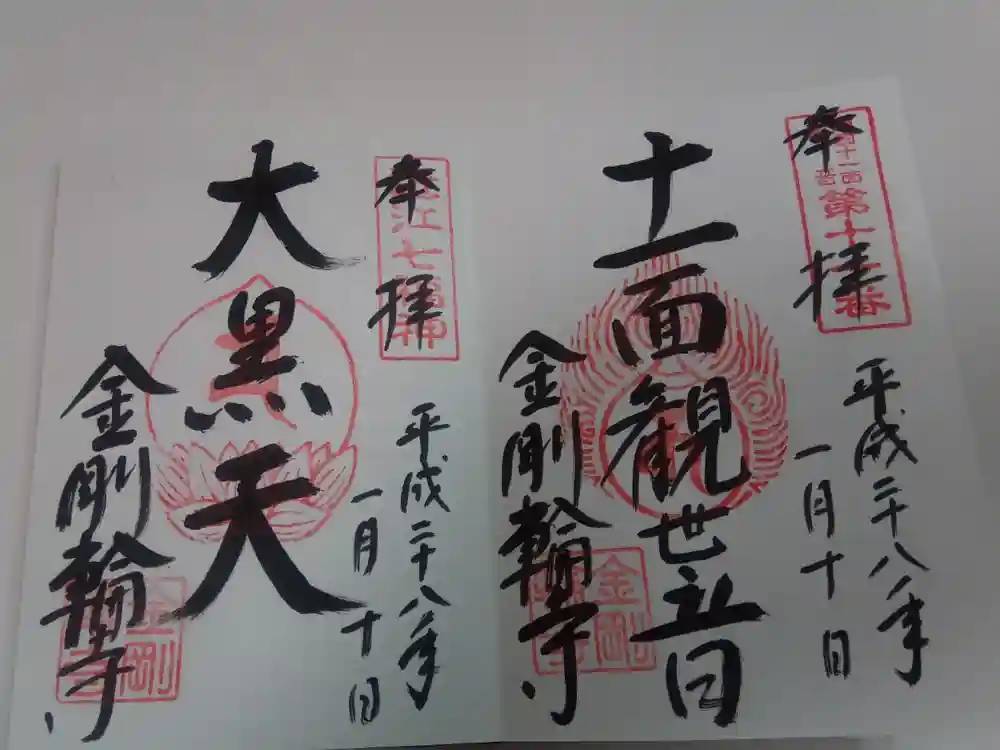 奉拝
第十
平成二十八年
一月十日
十一面観世音
金剛輪寺
金剛
奉拝
江七福神
平成二十八年
一月十日
大黒天
金剛輪寺
金剛